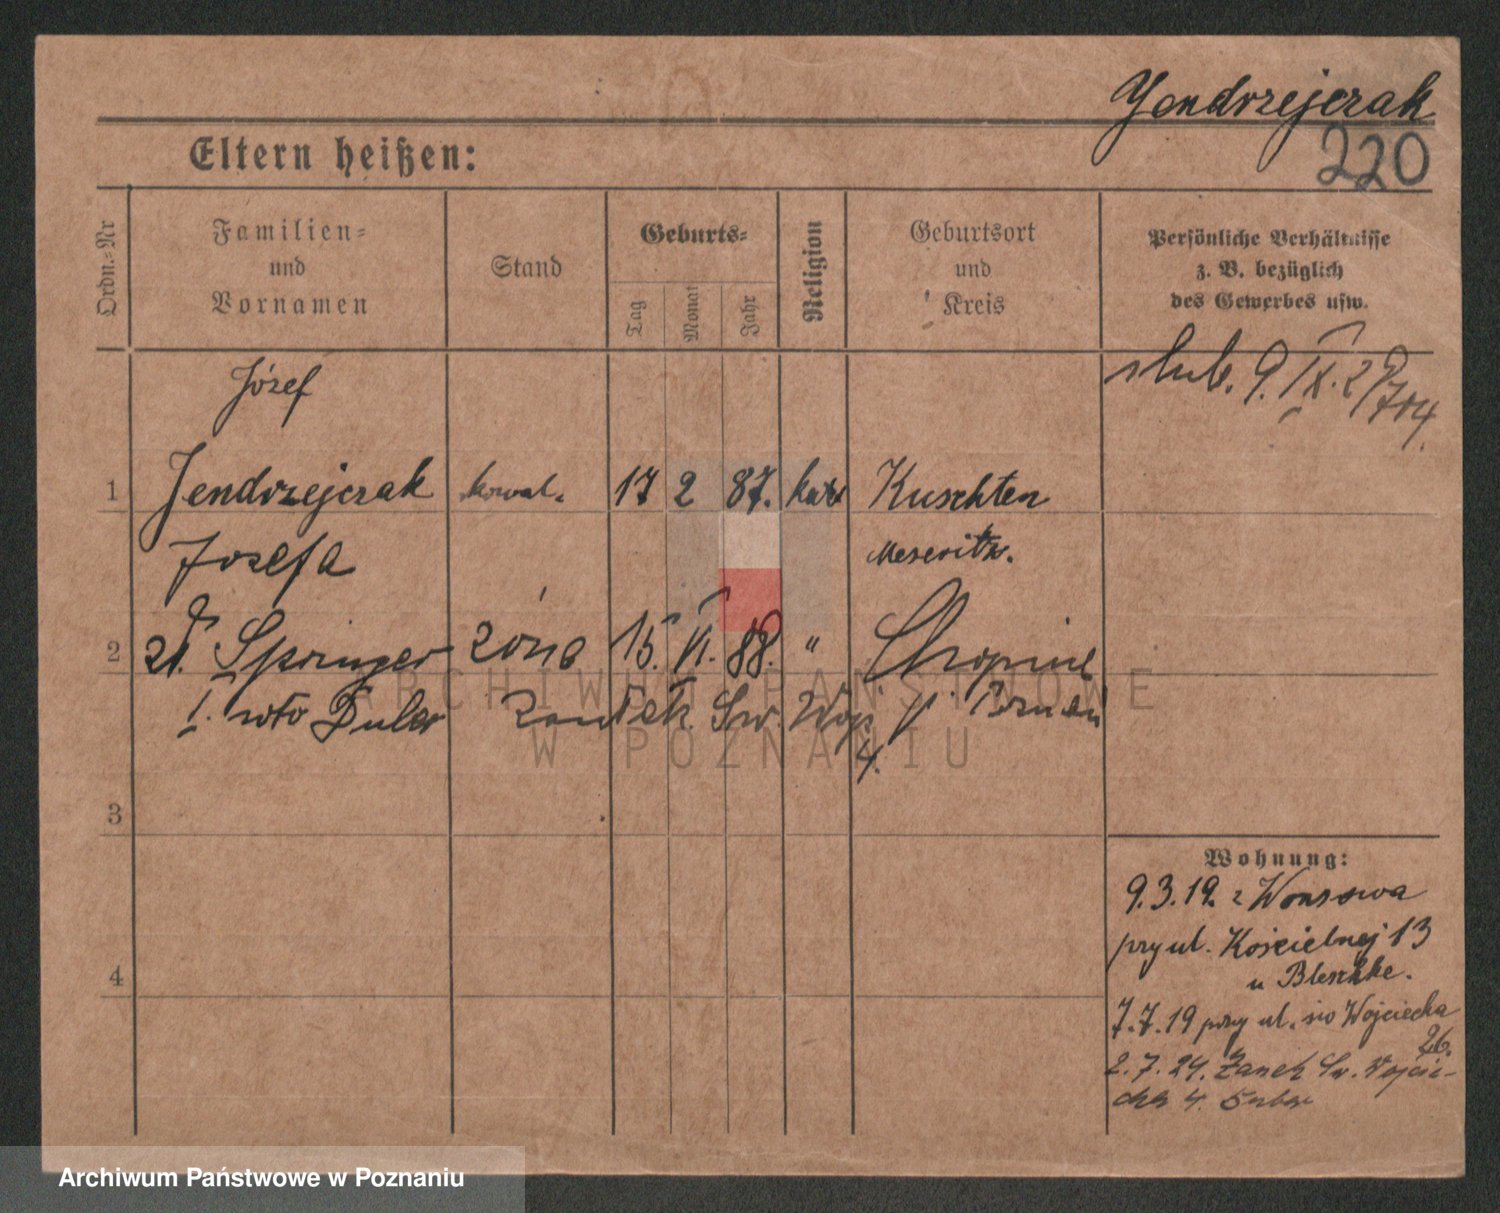 Jendrzejczak
220
Eltern heißen:
Ordn.-Nr
Familien-
und
Vornamen
Stand
Geburts-
Tag
Monat
Jahr
Religion
Geburtsort
und
Kreis
Persönliche Verhältnisse
z. B. bezüglich
des Gewerbes usw.
Józef
ślub. 9. IX. 29
1 Jendrzejczak kowal. 17 2 87. kat. Kuschten
Josefa Meseritz.
2 Springer żona 15. VI. 88. "
I. vto Duler Sw. Woj. 4.
3
4
Wohnung:
9.3.19. z Wonsowa
przy ul. Kościelnej 13
u Bleschke.
7.7.19 przy ul. św Wojciecha
26.
2.7.24. Sw. Wojcie-
cha 4.
ARCHIWUM PAŃSTWOWE
W POZNANIU
Archiwum Państwowe w Poznaniu